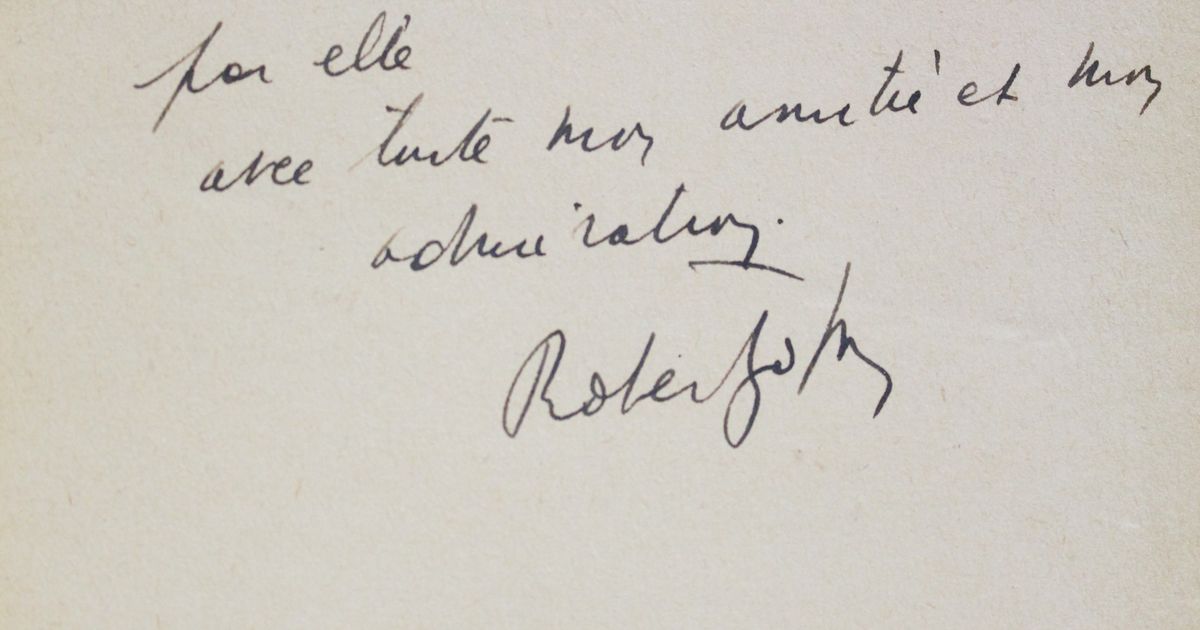 par elle
avec toute mon amitié et mon
admiration.
Robert